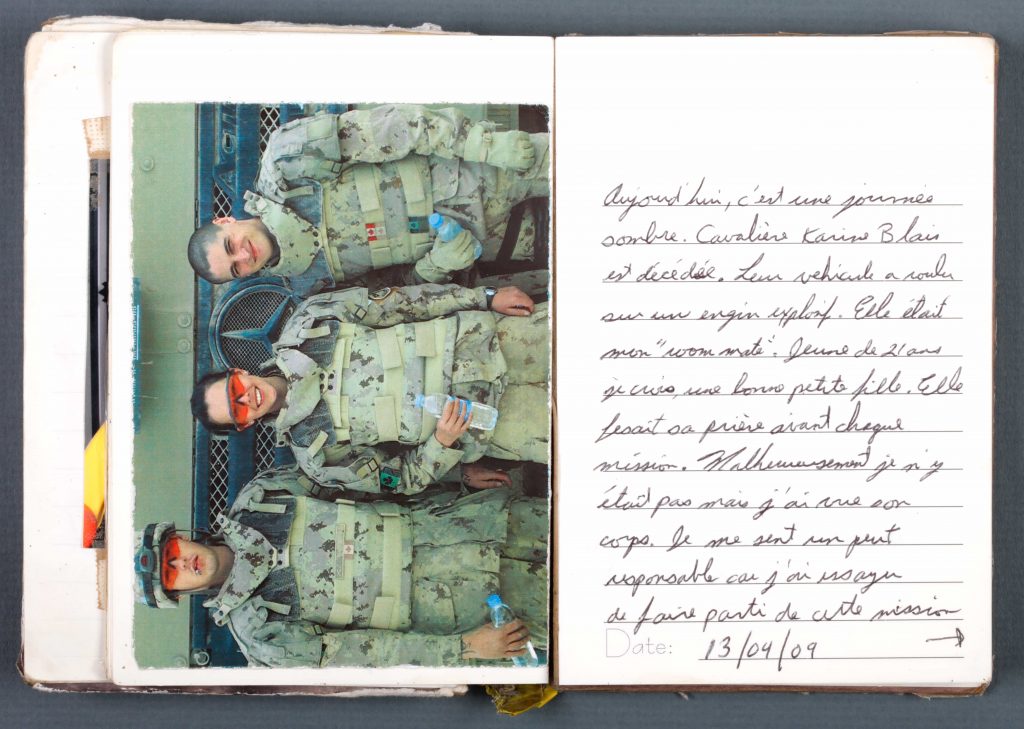 Aujourd'hui, c'est une journée
sombre. Cavalière Karine Blais
est décédée. Leur vehicule a roulu
sur un engin explosif. Elle était
mon "room mate". Jeune de 21 ans
je crois, une bonne petite fille. Elle
fesait sa prière avant chaque
mission. Malheureusement je n'y
était pas mais j'ai vue son
corps. Je me sent un peut
responsable car j'ai essayer
de faire parti de cette mission
Date: 13/04/09 →